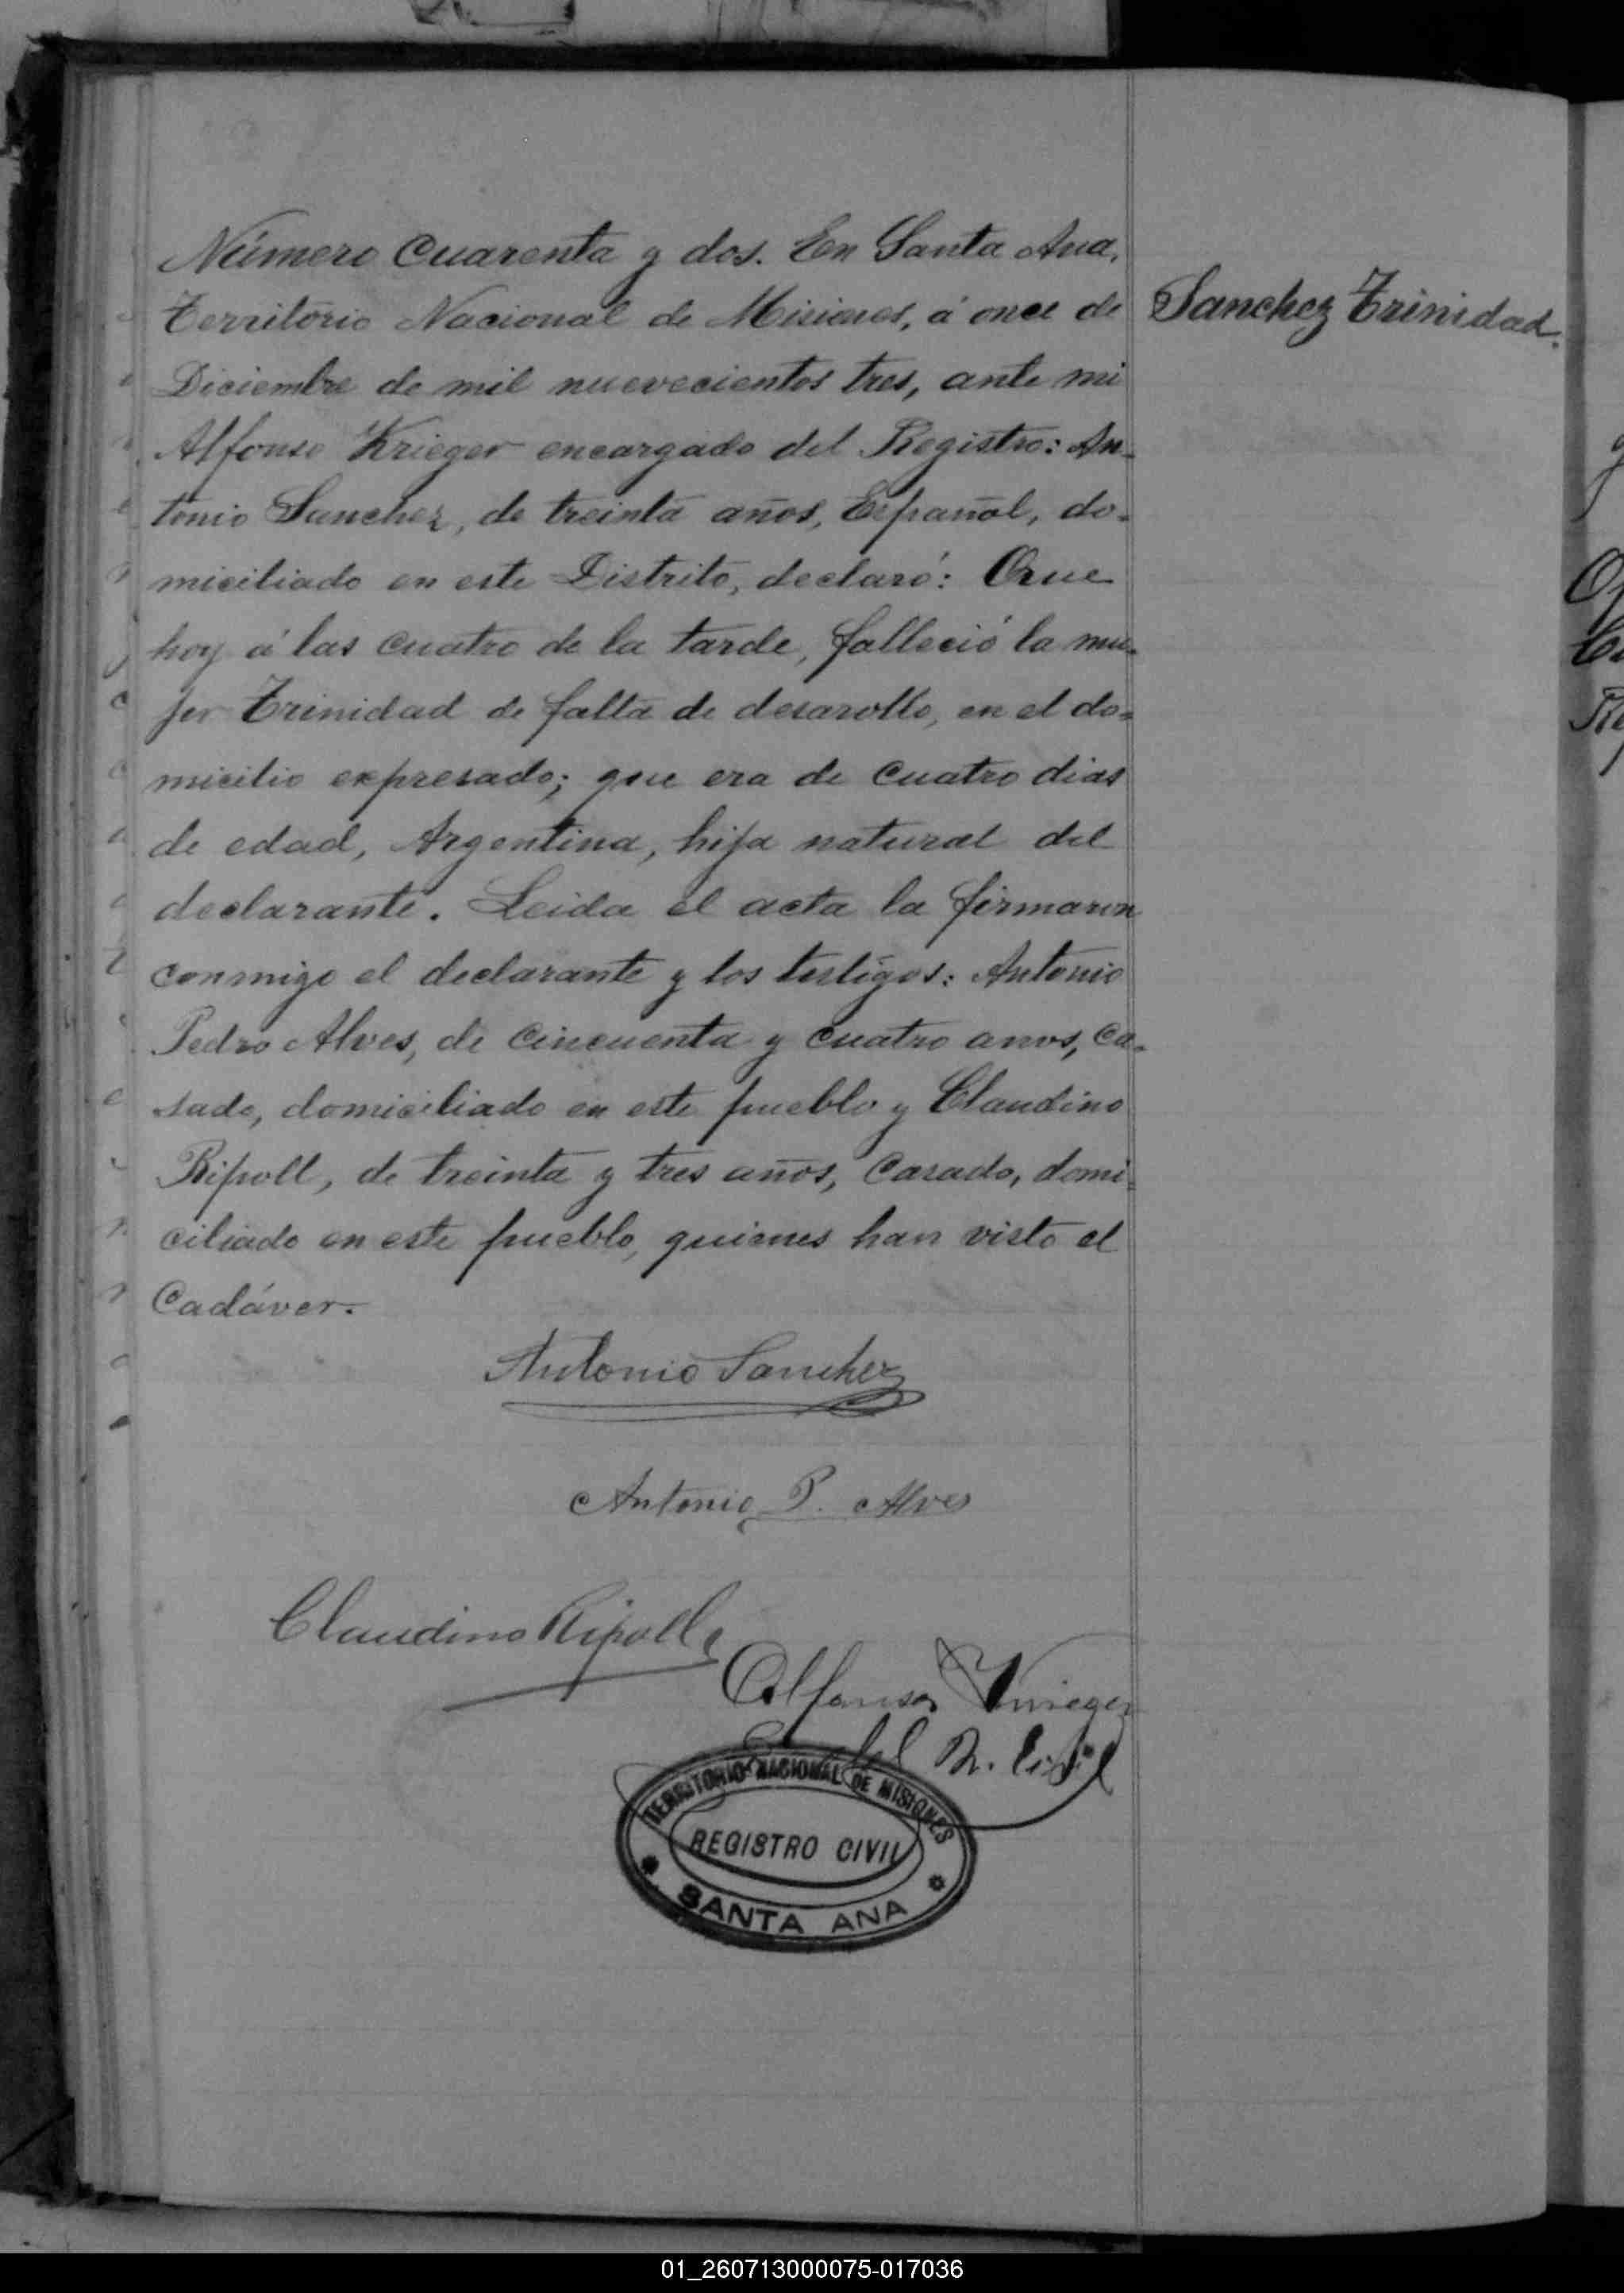 Número Cuarenta y dos. En Santa Ana,
Territorio Nacional de Misiones, á once de
Diciembre de mil nuevecientos tres, ante mi
Alfonso Krieger encargado del Registro: An-
tonio Sanchez, de treinta años, Español, do-
miciliado en este Distrito, declaró: Que
hoy á las cuatro de la tarde, falleció la mu-
jer Trinidad de falta de desarollo, en el do-
micilio expresado; que era de cuatro dias
de edad, Argentina, hija natural del
declarante. Leida el acta la firmaron
conmigo el declarante y los testigos: Antonio
Pedro Alves, de cincuenta y cuatro anos, ca-
sado, domiciliado en este pueblo y Claudino
Ripoll, de treinta y tres años, Casado, domi-
ciliado en este pueblo, quienes han visto el
Cadáver.
Sanchez Trinidad.
Antonio Sanchez
Antonio P. Alves
Claudino Ripoll
Alfonso Krieger
del R. Civil
TERRITORIO NACIONAL DE MISIONES
REGISTRO CIVIL
SANTA ANA
01_260713000075-017036